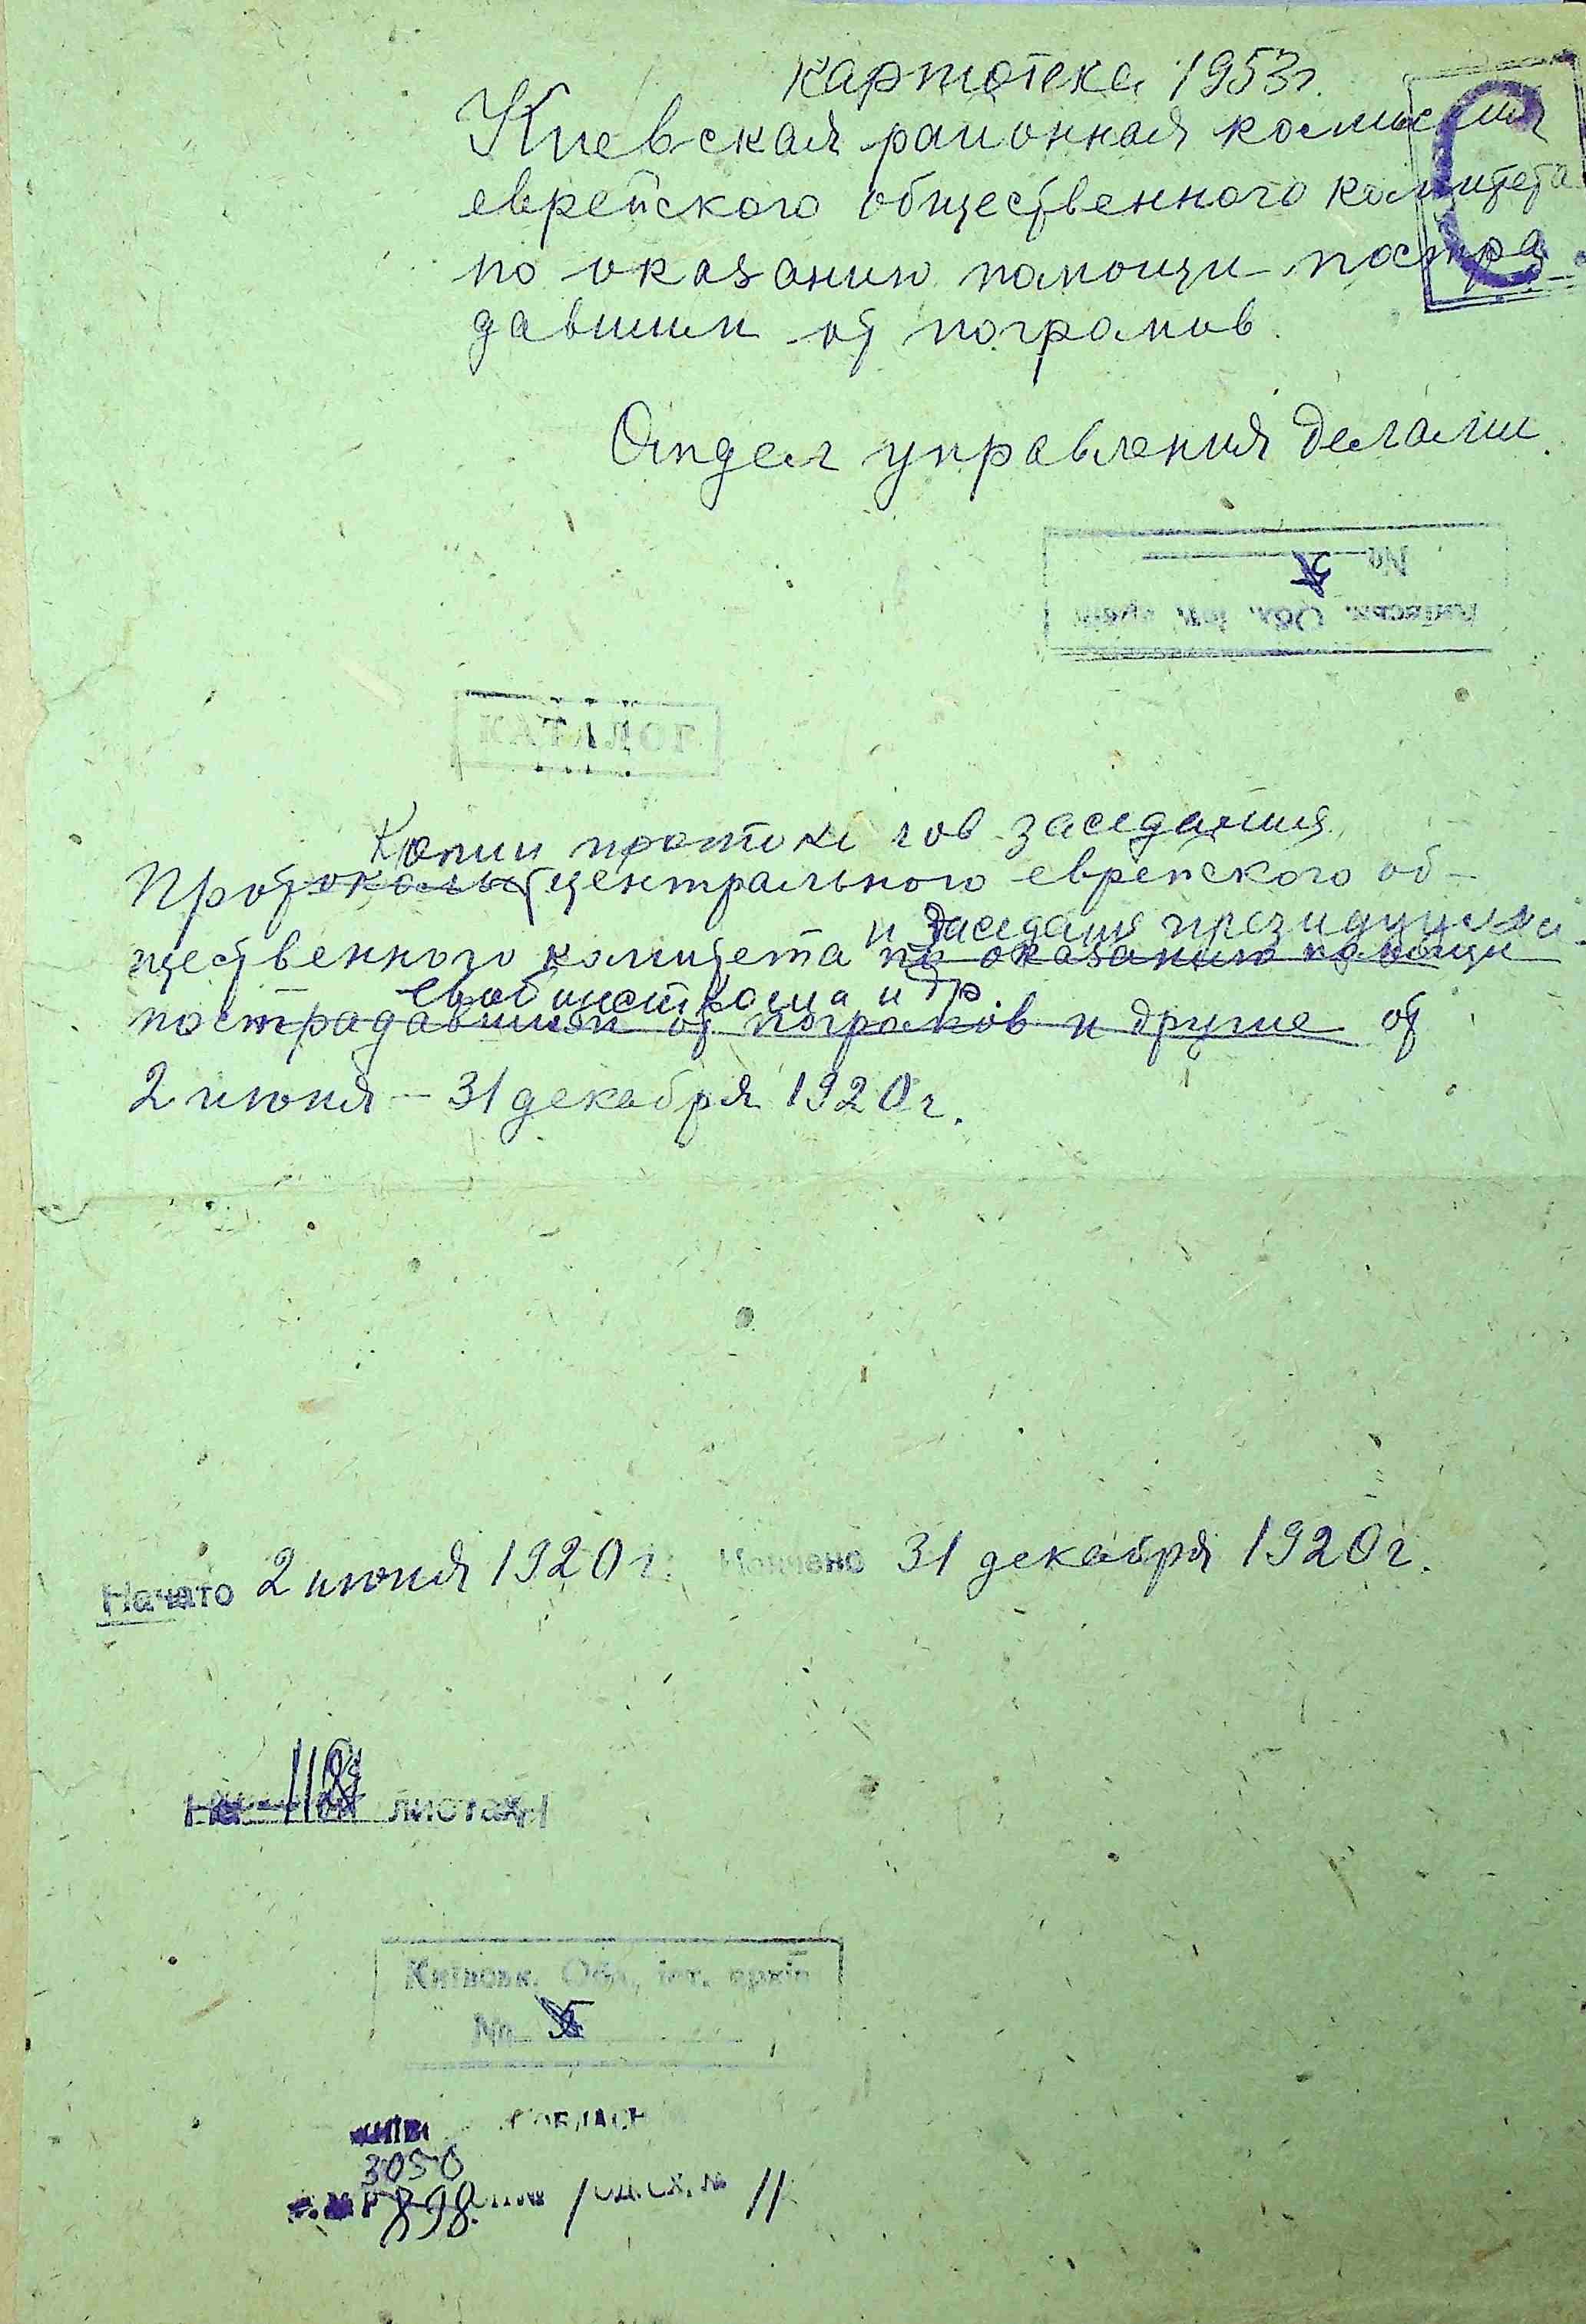 картотека 1953г.
Киевская районная комиссия
еврейского общественного комитета
по оказанию помощи постра
давшим от погромов.
Отдел управления делами.
№ 5
Київськ. Обл. іст. архів
КАТАЛОГ
Копии протоколов заседания
Протоколы центрального еврейского об-
и заседания президиума
щественного комитета по оказанию помощи
и др.
пострадавшим от погромов и другие от
2 июня - 31 декабря 1920г.
Начато 2 июня 1920г. Кончено 31 декабря 1920г.
На 118 листах
Київськ. Обл. іст. архів
№ 5
3050
Р 898 1 од. сх. № 11